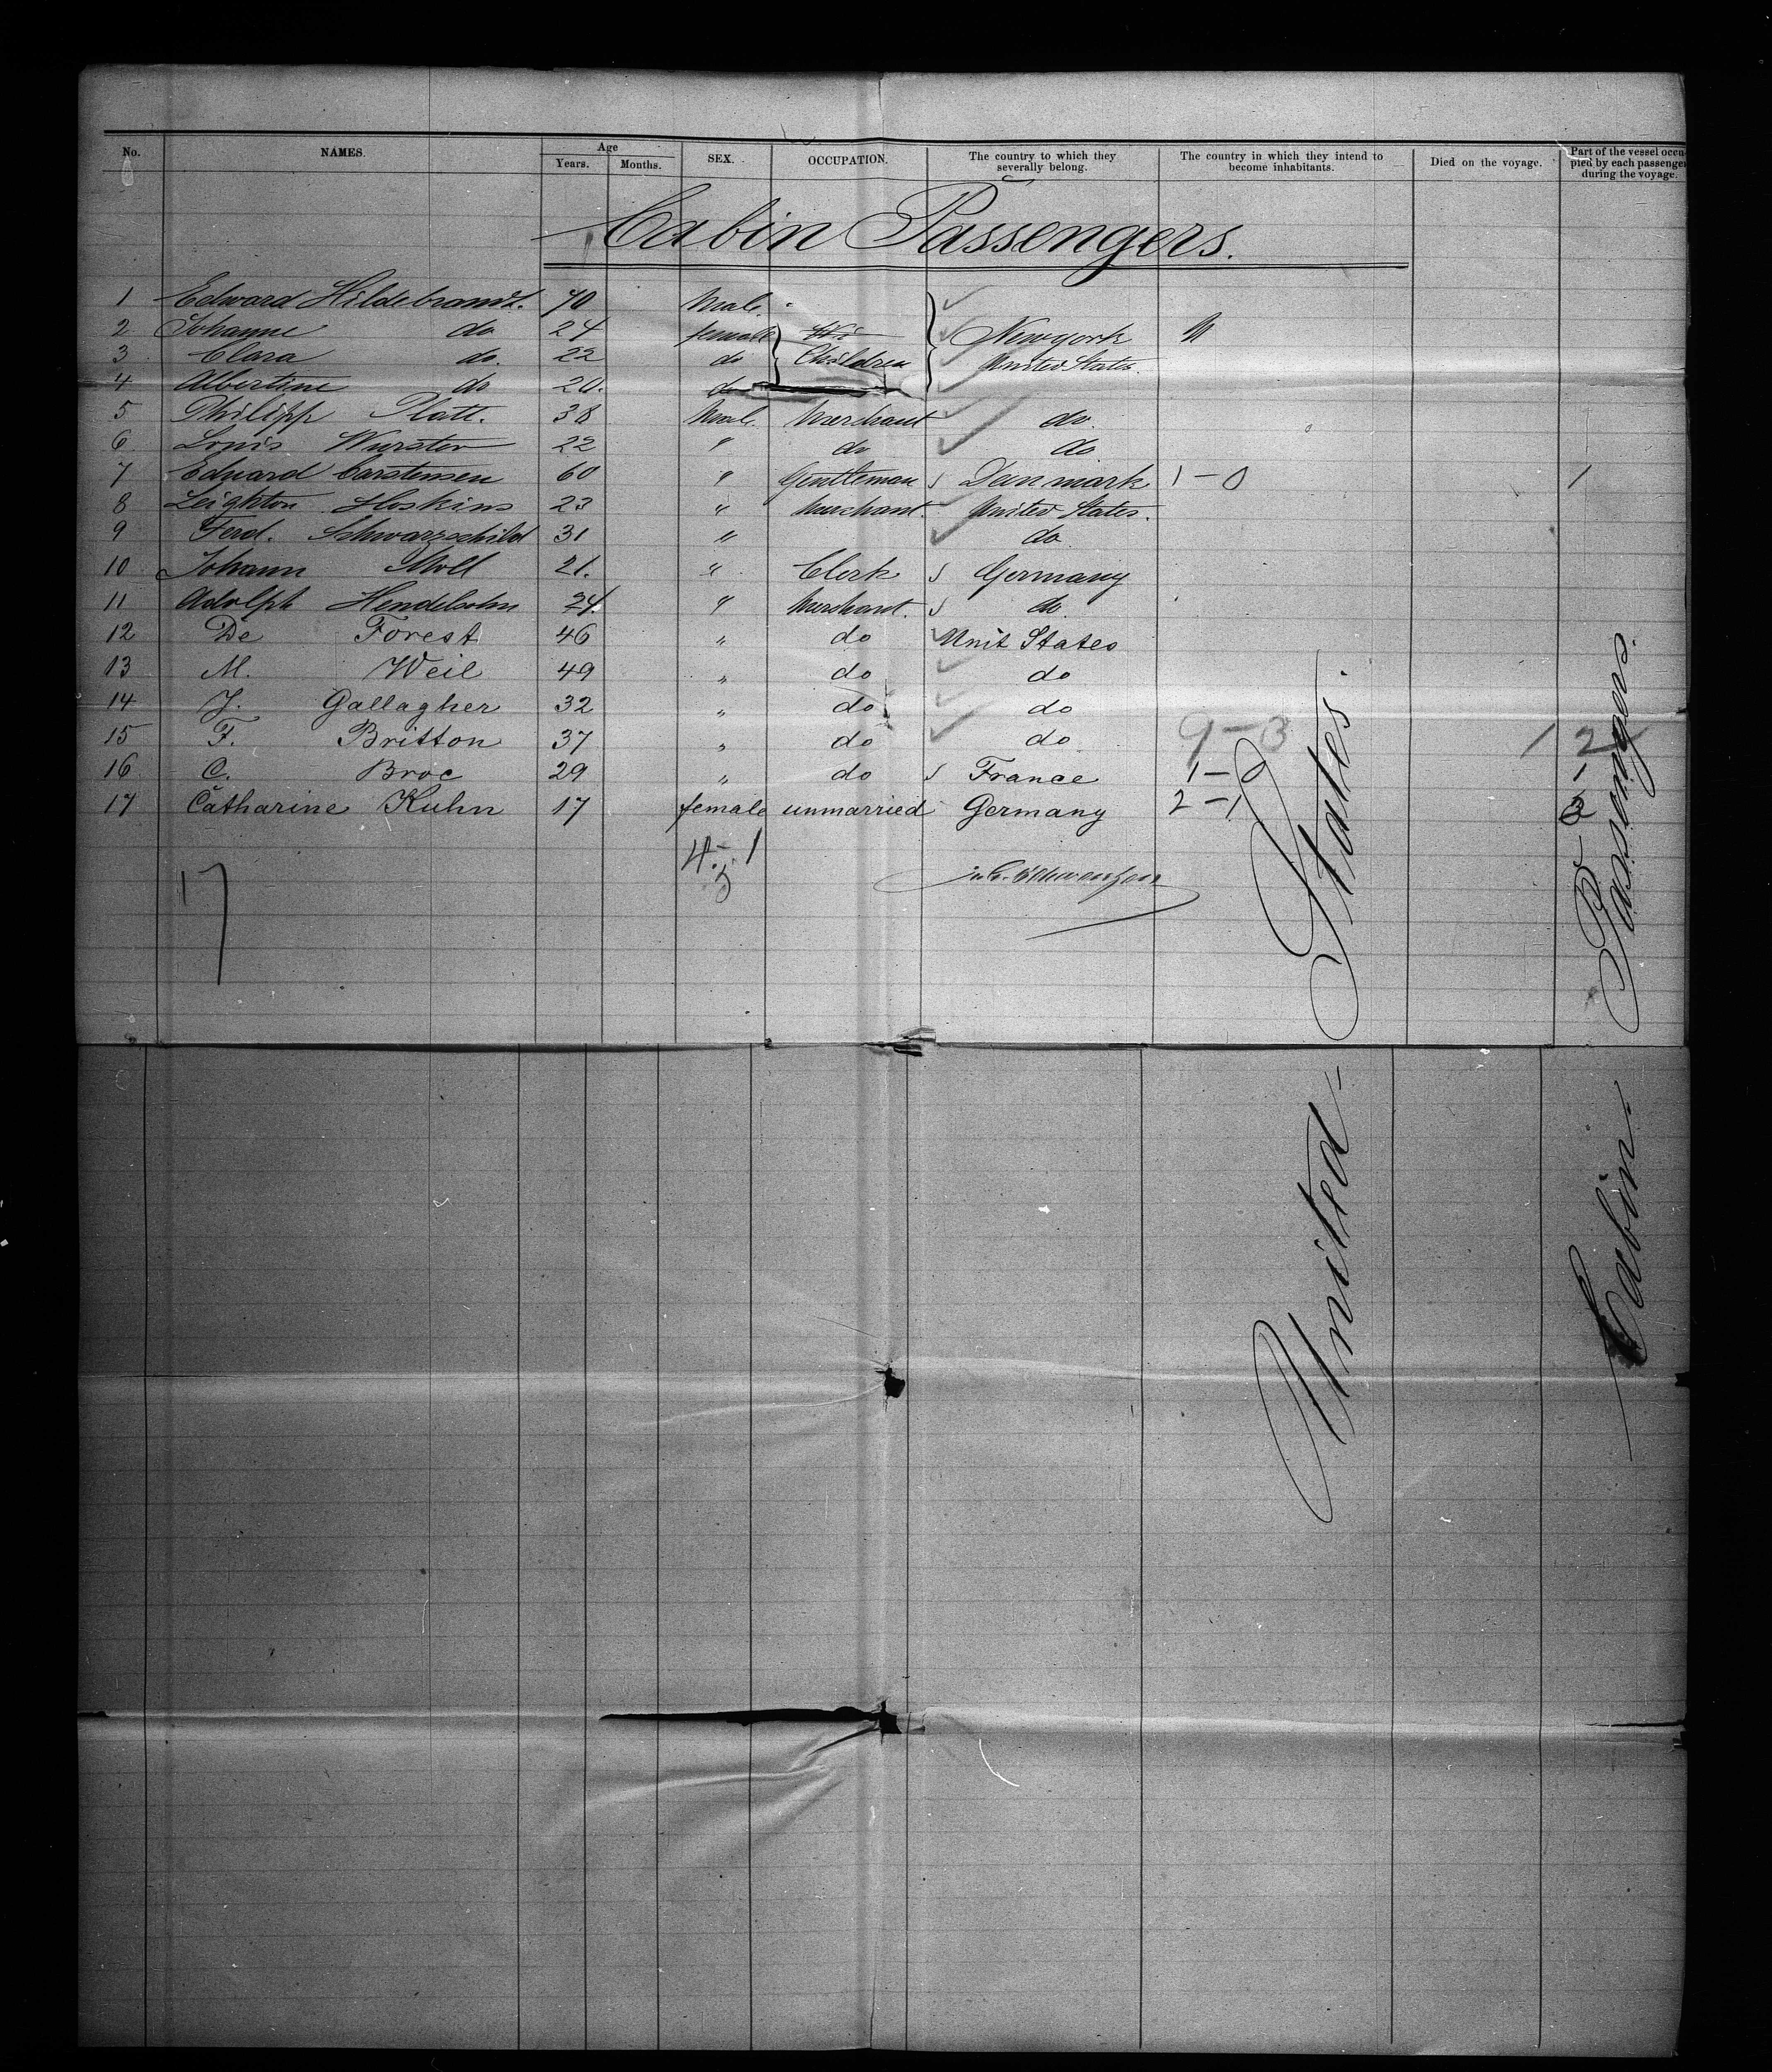 No. NAMES. Age Years. Months. SEX. OCCUPATION. The country to which they severally belong. The country in which they intend to become inhabitants. Died on the voyage. Part of the vessel occupied by each passenger during the voyage.
Cabin Passengers.
1 Edward Hildebrandt. 70 Male.
2 Johanne do 24 female Newyork
3 Clara do. 22 do Children United States.
4 Albertine do 20. do
5 Philipp Platt. 38 Male Merchant do.
6 Louis Wurster 22 " do do
7 Eduard Carstensen 60 " Gentleman Denmark 1-0 1
8 Leighton Hoskins 23 " Merchant. United States.
9 Ferd. Schwarzschild 31 " do.
10 Johann Moll 21. " Clerk Germany
11 Adolph Hendelsohn 24. " Merchant. do
12 De Forest 46 " do Unit States
13 M. Weil 49 " do do
14 J. Gallagher 32 " do do
15 F. Britton 37 " do do 9-3 12
16 C. Broc 29 " do France 1-0 1
17 Catharine Kuhn 17 female unmarried Germany 2-1 3
17
United-States.
Cabin-Passengers.